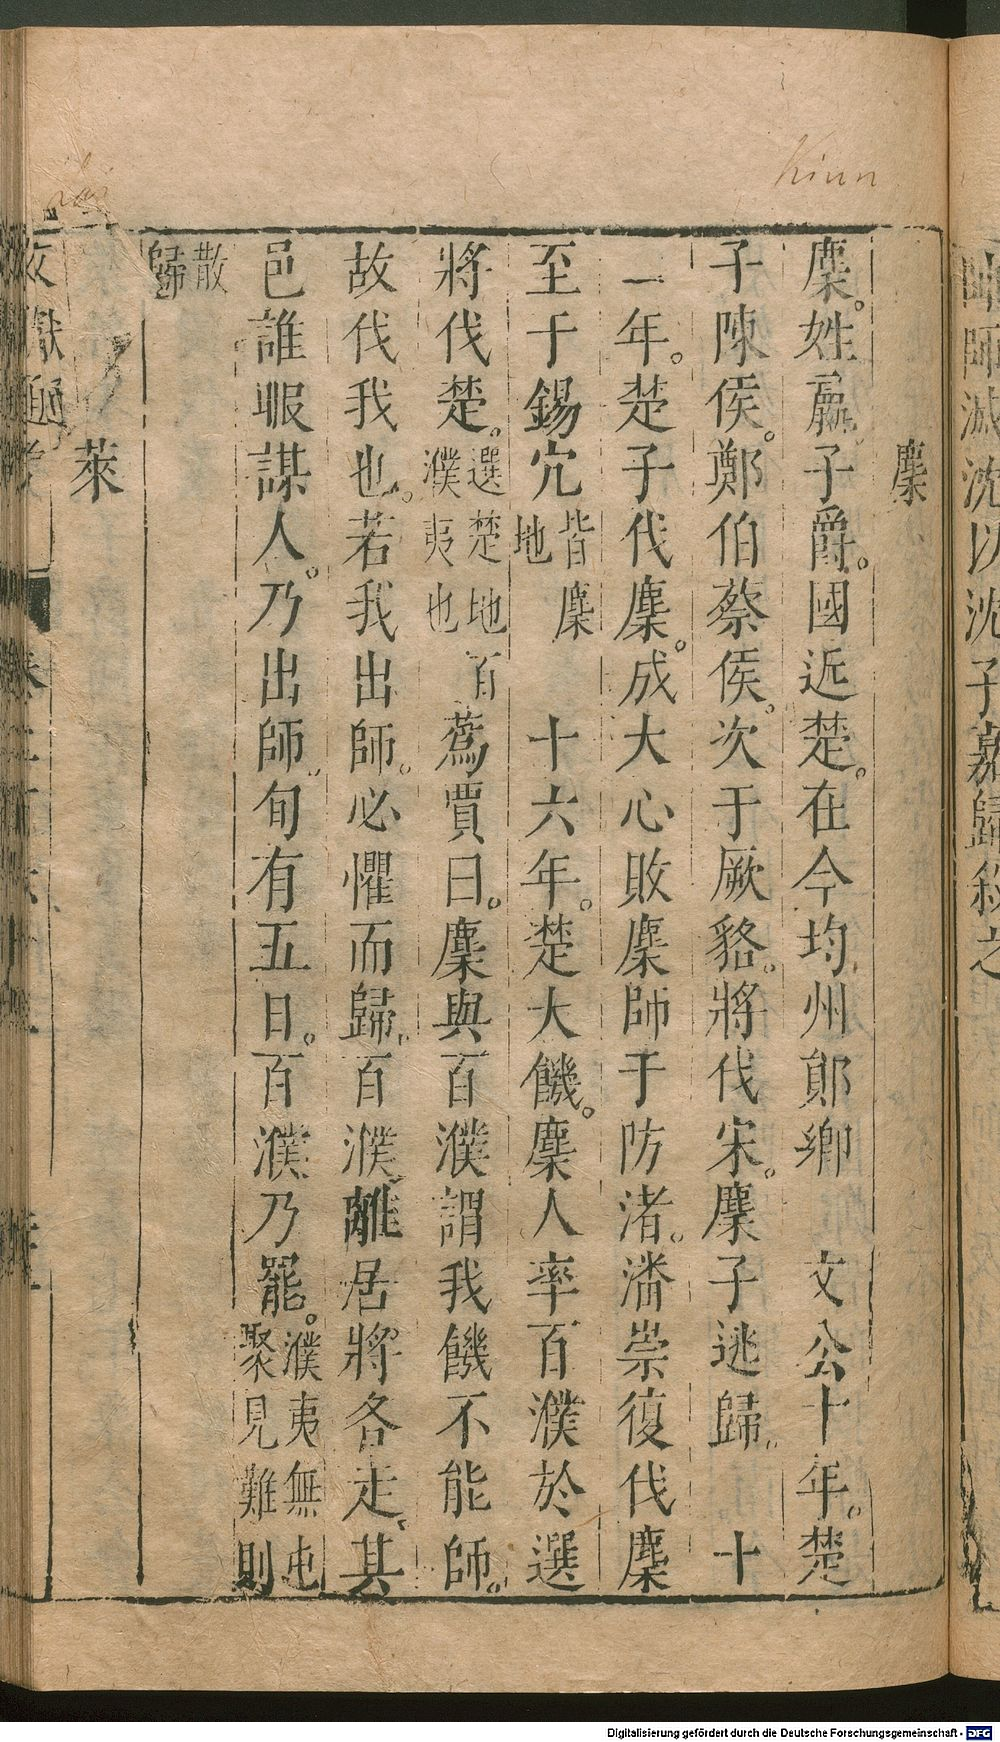 Kiun
麇
麇。姓嬴子爵。國近楚。在今均州鄖鄉　文公十年。楚
子陳侯。鄭伯蔡侯。次于厥貉。將伐宋。麇子逃歸　十
一年。楚子伐麇。成大心敗麇師于防渚。潘崇復伐麇
至于錫穴皆麇地　十六年。楚大饑。麇人率百濮於選
將伐楚。選楚地百濮夷也　蒍賈曰。麇與百濮謂我饑不能師。
故伐我也。若我出師。必懼而歸。百濮離居將各走。其
邑誰暇謀人。乃出師。旬有五日。百濮乃罷。濮夷無屯聚見難則
散歸
萊
師滅沈以沈子嘉歸殺之
Digitalisierung gefördert durch die Deutsche Forschungsgemeinschaft - DFG